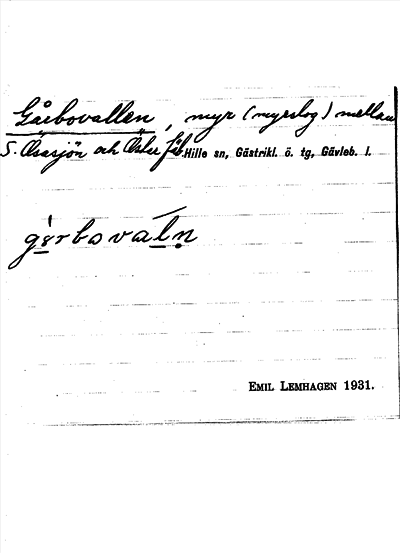 Gåsbovallen, myr (myrslog) mellan
S. Åsasjön och Öster fäb. Hille sn, Gästrikl. ö. tg, Gävleb. l.
EMIL LEMHAGEN 1931.